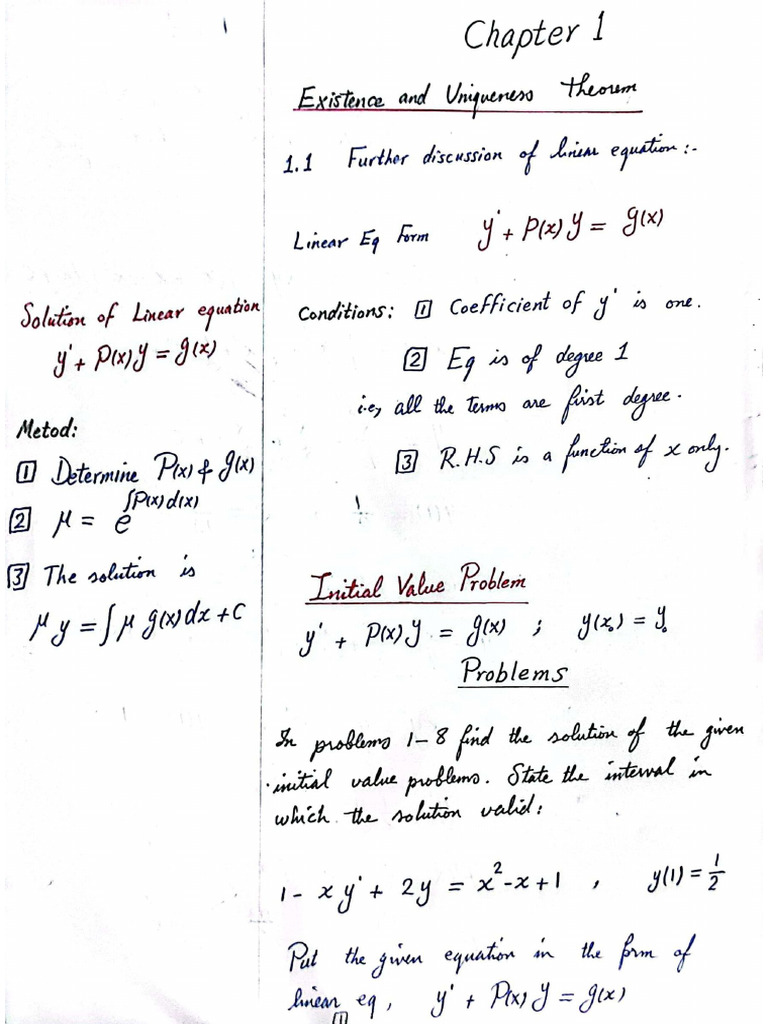 Chapter 1
Existence and Uniqueness theorem
1.1 Further discussion of linear equation:-
Linear Eq Form y' + P(x) y = g(x)
Conditions: 1 Coefficient of y' is one.
2 Eq is of degree 1
i.e, all the terms are first degree.
3 R.H.S is a function of x only.
Solution of Linear equation
y' + P(x)y = g(x)
Metod:
1 Determine P(x) & g(x)
2 μ = e^∫P(x)d(x)
3 The solution is
μy = ∫μ g(x)dx + C
Initial Value Problem
y' + P(x)y = g(x) ; y(x₀) = y₀
Problems
In problems 1-8 find the solution of the given
initial value problems. State the interval in
which the solution valid:
1- xy' + 2y = x²-x+1 , y(1) = 1/2
Put the given equation in the form of
linear eq, y' + P(x)y = g(x)
1